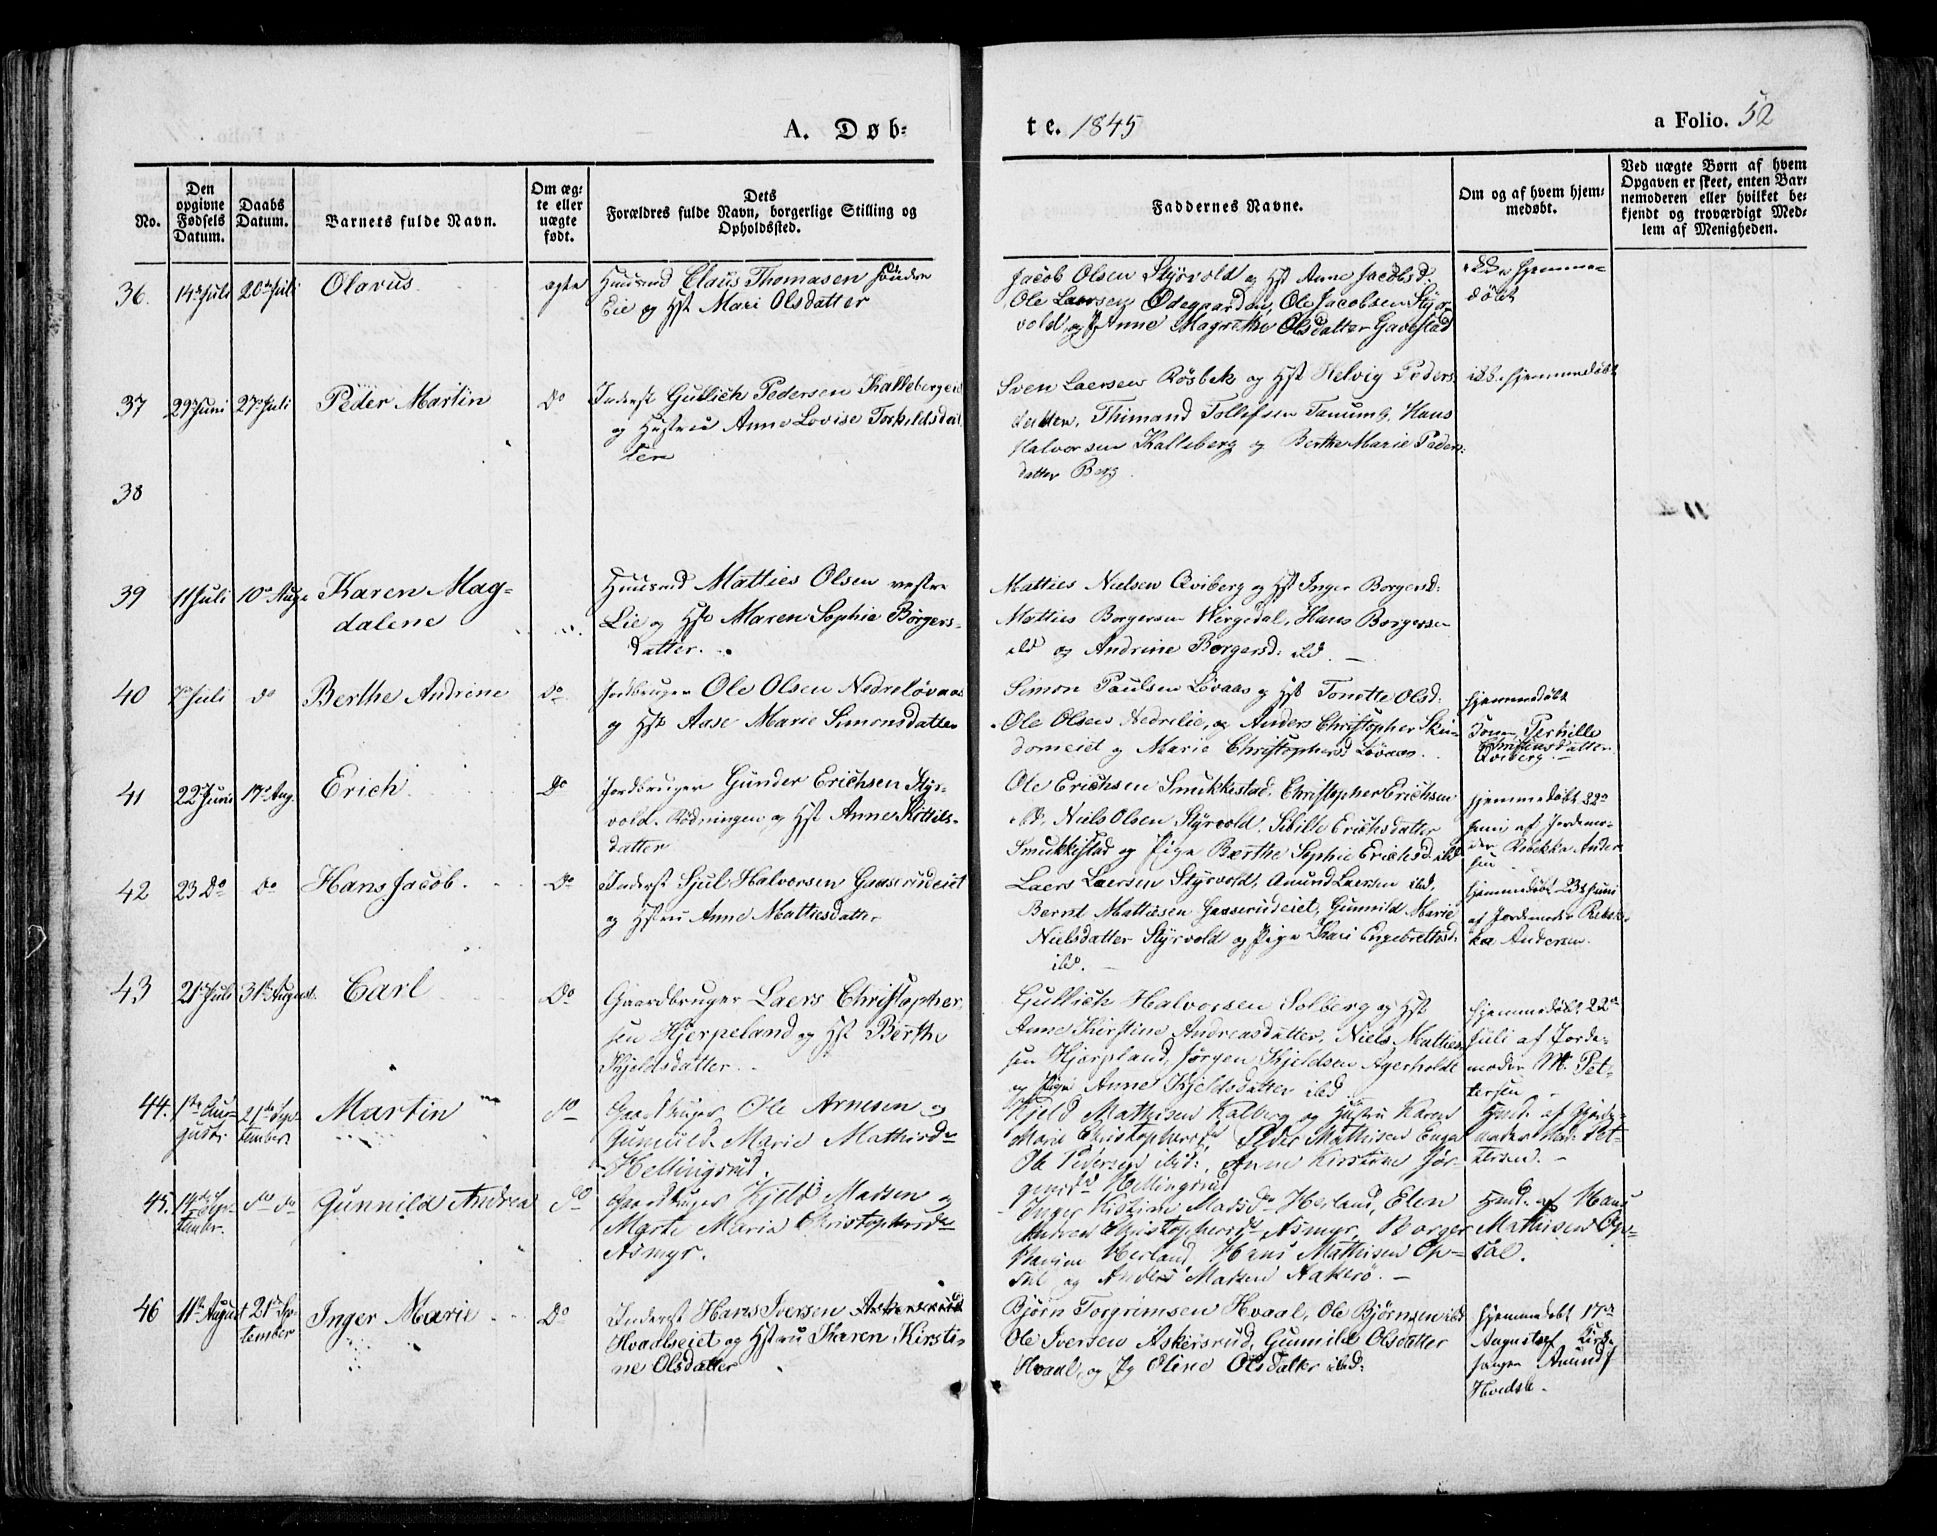 A. Døb-
te. 1845
a Folio. 52
No.
Den opgivne Fødsels Datum.
Daabs Datum.
Barnets fulde Navn.
Om ægte eller uægte født.
Dets Forældres fulde Navn, borgerlige Stilling og Opholdssted.
Faddernes Navne.
Om og af hvem hjemmedøbt.
Ved uægte Børn af hvem Opgaven er skeet, enten Barnemoderen eller hvilket bekjendt og troværdigt Medlem af Menigheden.
36. 14de Juli 20de Juli Olavus ægte
Huusmd Claus Thomasen søndre
Eie og Hst Mari Olsdatter
Jacob Olsen Styrvold og Hst Anne Jacobsd:
Ole Laersen Ødegaarden, Ole Jacobsen Styr-
vold og P. Anne Magrethe Olsdatter Gavestad
hjemme-
døbt
37 29 Juni 27 Juli Peder Martin Do
Inderst Gullich Pedersen Kallebergeie
og Hustru Anne Lovise Torkildsdat
ter
Sven Laersen Røsbek og Hst Helvig Peders
datter, Thimand Tollefsen Tanum, Hans
Halvorsen Kalleberg og Berthe Marie Peders:
datter Berg.
hjemmedøbt
38
39 11 Juli 10de Aug. Karen Mag-
dalene
Huusmd Matties Olsen vestre
Lie og Hst Maren Sophie Børgers-
datter.
Matties Nielsen Qviberg og Hst Inger Borgersd:
Matties Borgersen Vergedal, Hans Borgersen
ibd og Andrine Borgersd: ibd.
40 Juli do Berthe Andrine do
Jordbruger Ole Olsen Nedreløvaas
og Hst Aase Marie Simonsdatter
Simon Paulsen Løvaas og Hst Tonette Olsd:
Ole Olsen Nedrelie, og Anders Christopher Skin-
domeiet og Marie Christophersd Løvaas.
hjemmedøbt
Pernille
Christensdatter
Qviberg.
41 22 Juni 17de Aug. Erich Do
Jordbruger Gunder Erichsen Styr-
vold Rødningen og Hst Anne Kittils-
datter
Ole Erichsen Smukkestad, Christopher Erichsen
ibd, Niels Olsen Styrvold, Sibille Erichsdatter
Smukkestad og Pige Berthe Sophie Erichsd ibd
hjemmedøbt 22de
Juni af Jordemo-
der Rebekka Ander
sen
42 23 Do Do Hans Jacob. Do
Inderst Sjul Halvorsen Gaaserudeiet
og Hstru Anne Mattiesdatter
Laers Laersen Styrvold, Amund Laersen ibd,
Bernt Mattiesen Gasserudeiet, Gunnild Marie
Nielsdatter Styrvold og Pige Kari Engebrettsd:
ibd.
hjemmedøbt 23 Juni
af Jordemoder Rebek-
ka Andersen.
43 21 Juli 31te August. Carl Do
Gaardbruger Laers Christopher-
sen Hjerpeland og Hst Berthe
Kjeldsdatter
Gullich Halvorsen Solberg og Hst
Anne Kirstine Andreasdatter, Niels Matties
sen Hjerpland, Jørgen Kjeldsen Agerholdt
og Pige Anne Kjeldsdatter ibd
hjemmedøbt 22de
Juli af Jorde-
moder M. Pet-
tersen
44. 1ste Au-
gust. 21de Sep-
tember. Martin do
Gaardbruger Ole Arnesen og
Gunnild Marie Mathisd.
Hellingsrud.
Kjeld Mathisen Kalberg og Hustru Karen
Marie Christophersd. Peder Mathisen Enga
Ole Pedersen ibid:, Anne Kirstine Jør-
gensd Hellingsrud
Hmd. af Gjorde-
moder Mad: Pet-
tersen.
45. 14de Sep-
tember. do do Gunnild Andrea do
Gaardbruger Kjeld Madsen og
Marte Maria Christophersd.
Asmyr.
Inger Kistine Madsd. Herland, Elen
Andrea Christophersd. Asmyr, Borger
Herland, Hans Mathisen Op-
sal og Anders Madsen Aakerø.
Hmd. af Hans
Mathisen Op-
sal.
46 11te August 21de Sep-
tember Inger Marie Do
Inderst Hans Iversen Askersrud
Hvaalseiet og Hstru Karen Kirsti-
ne Olsdatter
Bjørn Torgrimsen Hvaal, Ole Bjørnsen ibd
Ole Iversen Askersrud, Gunnild Olsdatter
Hvaal, og Pg Eline Olsdatter ibd:
hjemmedøbt 17de
August af Kirke
sanger Amund
Hvedsle.